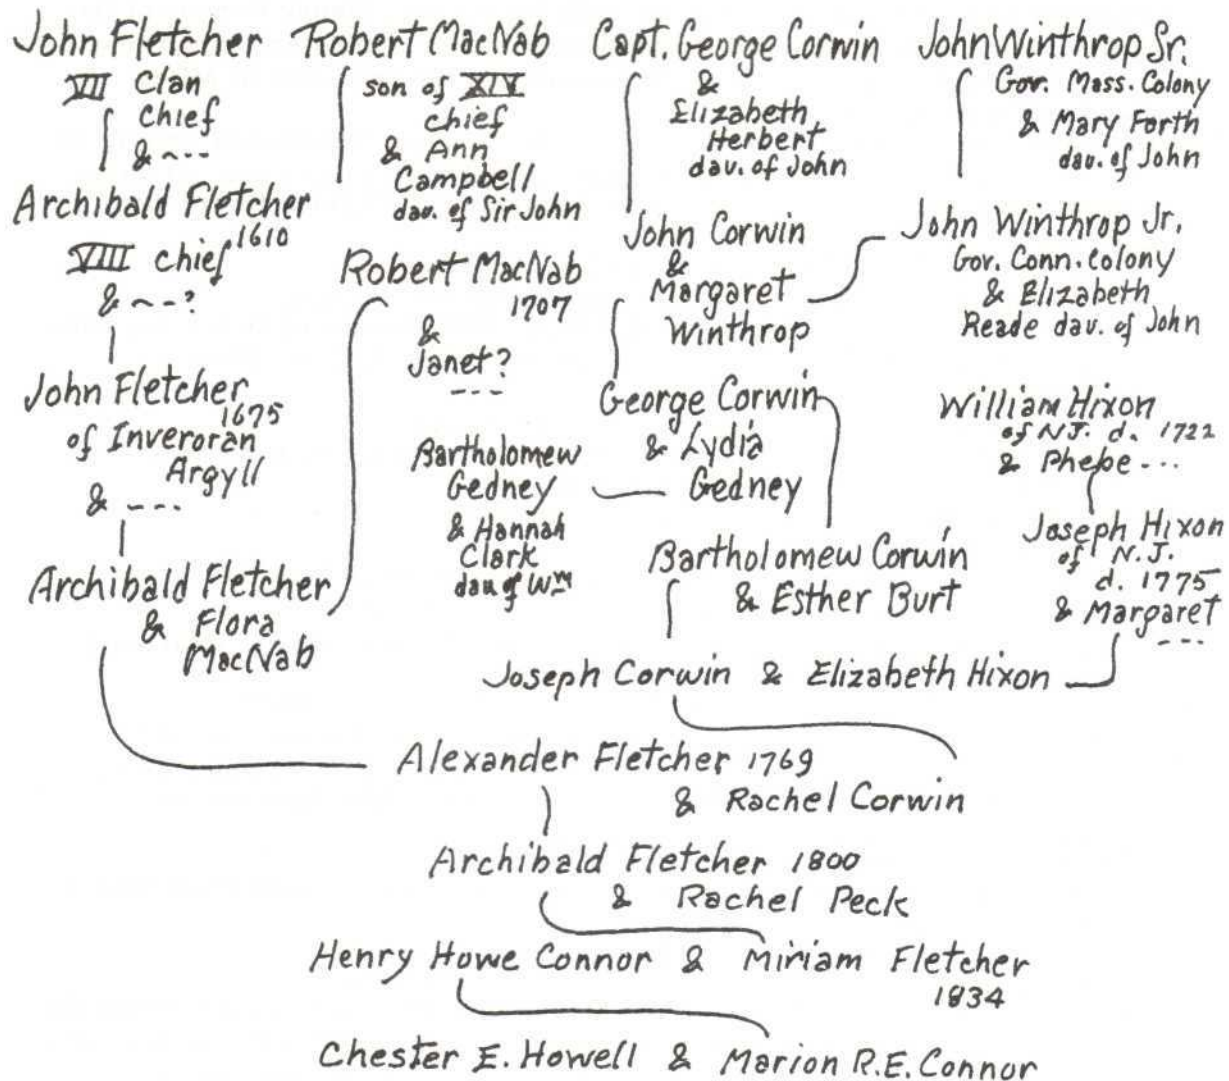 John Fletcher
VII Clan
Chief
& ---
Archibald Fletcher
1610
VIII chief
& --?
John Fletcher
1675
of Inveroran
Argyll
& ---
Archibald Fletcher
& Flora
MacNab
Robert MacNab
son of XIV
chief
& Ann
Campbell
dau. of Sir John
Robert MacNab
1707
&
Janet?
---
Capt. George Corwin
&
Elizabeth
Herbert
dav. of John
John Corwin
&
Margaret
Winthrop
George Corwin
& Lydia
Gedney
Bartholomew
Gedney
& Hannah
Clark
dau of Wm
Bartholomew Corwin
& Esther Burt
John Winthrop Sr.
Gov. Mass. Colony
& Mary Forth
dau. of John
John Winthrop Jr.
Gov. Conn. Colony
& Elizabeth
Reade dav. of John
William Hixon
of NJ. d. 1722
& Phebe ---
Joseph Hixon
of N.J.
d. 1775
& Margaret
---
Joseph Corwin & Elizabeth Hixon
Alexander Fletcher 1769
& Rachel Corwin
Archibald Fletcher 1800
& Rachel Peck
Henry Howe Connor & Miriam Fletcher
1834
Chester E. Howell & Marion R.E. Connor